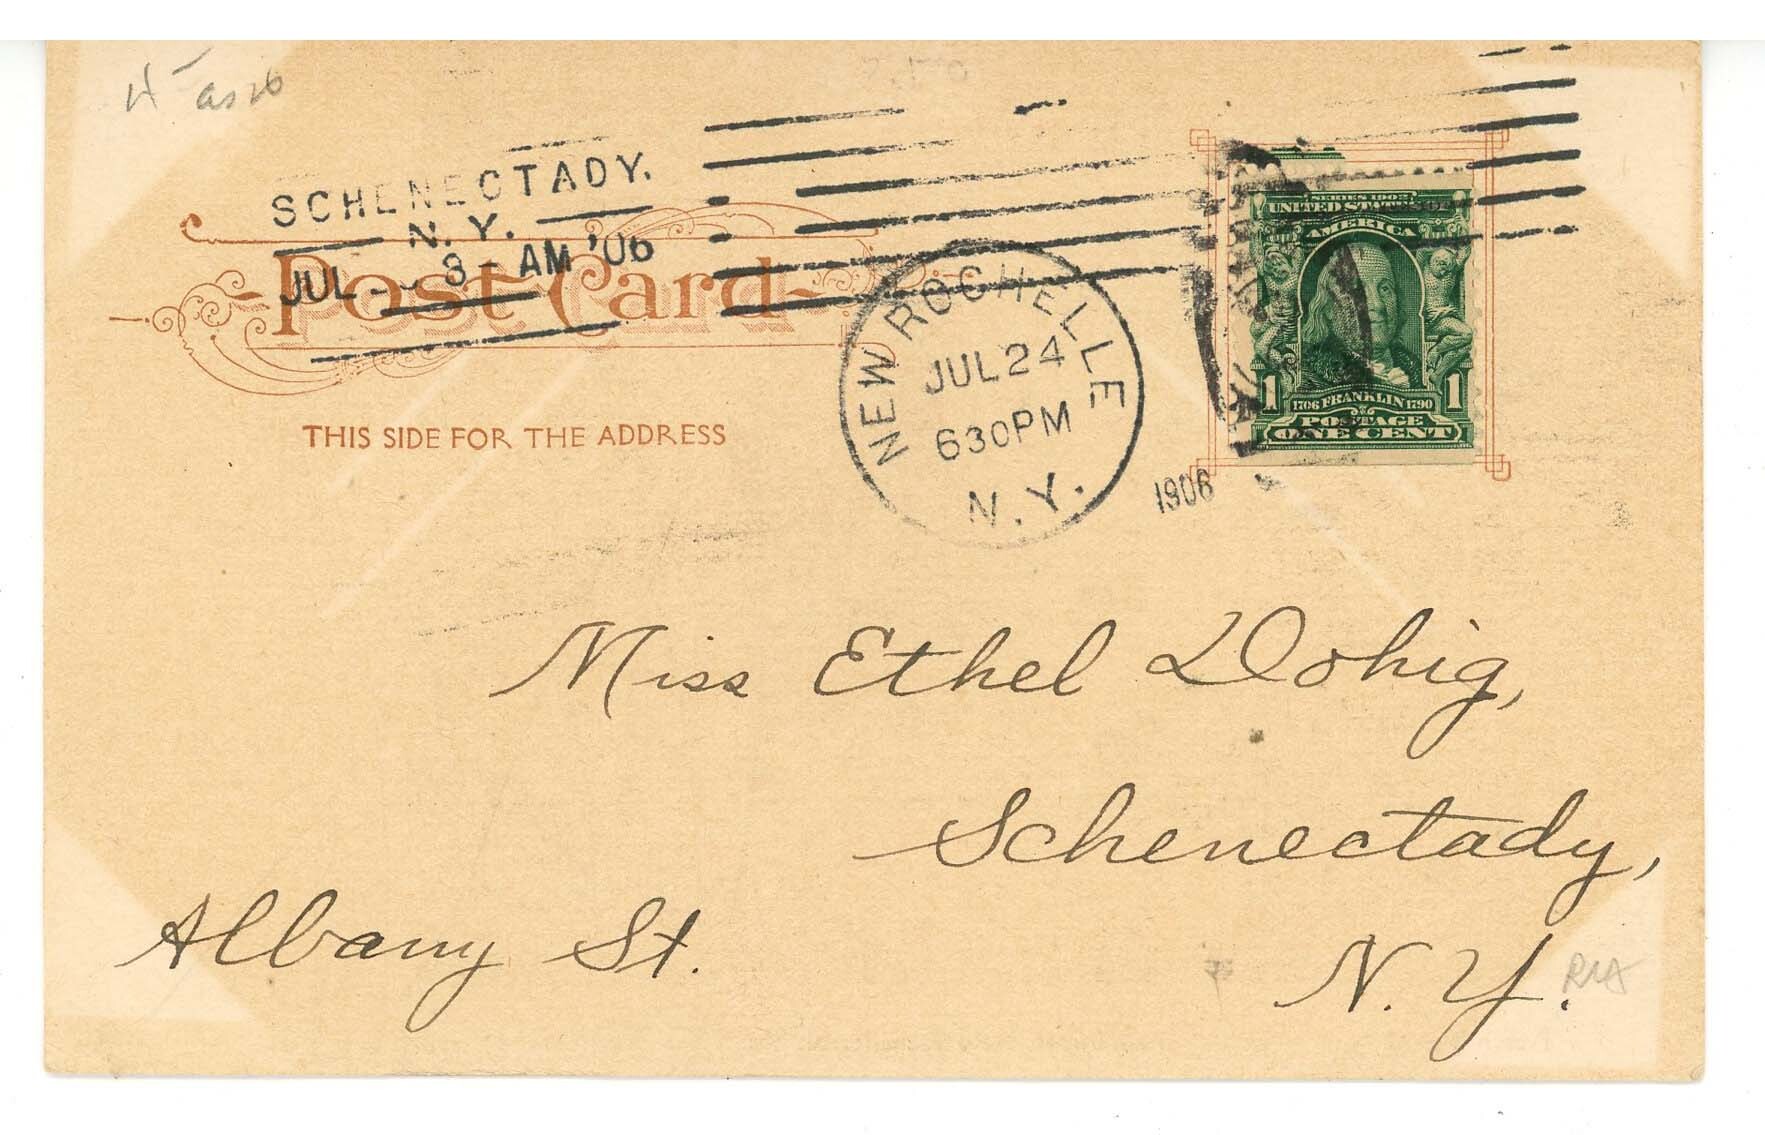 as is
SCHENECTADY.
N. Y.
JUL 8- AM '06
Post Card
THIS SIDE FOR THE ADDRESS
NEW ROCHELLE
JUL 24
630PM
N.Y.
1906
SERIES 1902
UNITED STATES OF
AMERICA
1 1706 FRANKLIN 1790 1
POSTAGE
ONE CENT
Miss Ethel Dohig,
Schenectady,
Albany St.
N. Y.